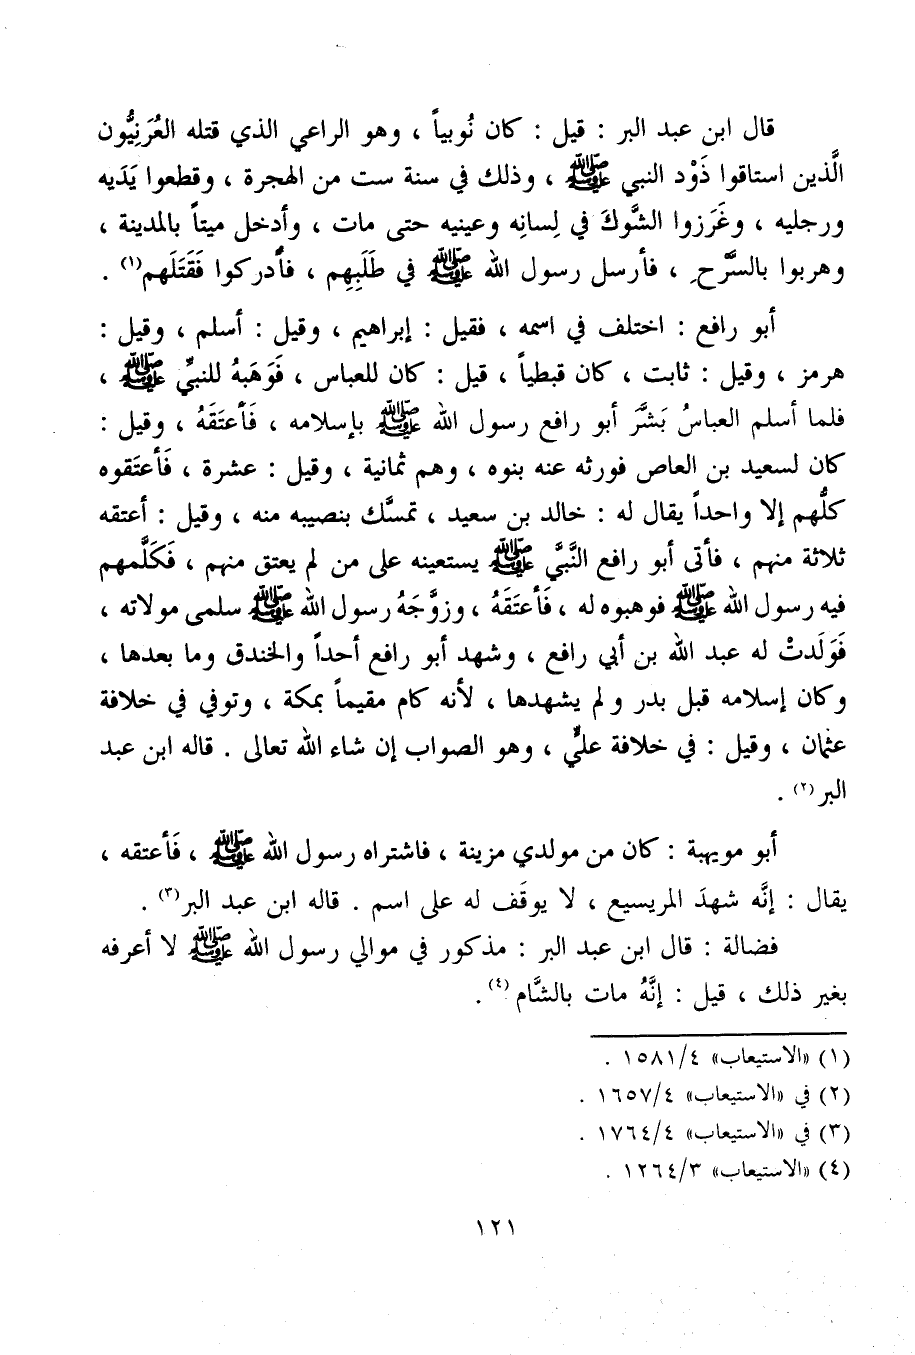 قال ابن عبد البر : قيل : كان نُوبياً ، وهو الراعي الذي قتله العُرَنِيُّون
الَّذين استاقوا ذَوْد النبي ﷺ ، وذلك في سنة ست من الهجرة ، وقطعوا يَدَيه
ورجليه ، وغَرَزوا الشَّوكَ في لِسانِه وعينيه حتى مات ، وأدخل ميتاً بالمدينة ،
وهربوا بالسَّرْحِ ، فأرسل رسول الله ﷺ في طَلَبِهِم ، فأُدركوا فَقَتَلَهم(١) .
أبو رافع : اختلف في اسمه ، فقيل : إبراهيم ، وقيل : أسلم ، وقيل :
هرمز ، وقيل : ثابت ، كان قبطياً ، قيل : كان للعباس ، فَوَهَبهُ للنبيِّ ﷺ ،
فلما أسلم العباسُ بَشَّرَ أبو رافع رسول الله ﷺ بإسلامه ، فَأَعتَقَهُ ، وقيل :
كان لسعيد بن العاص فورثه عنه بنوه ، وهم ثمانية ، وقيل : عشرة ، فَأَعتَقوه
كلُّهم إلا واحداً يقال له : خالد بن سعيد ، تمسَّك بنصيبه منه ، وقيل : أعتقه
ثلاثة منهم ، فأتى أبو رافع النَّبيَّ ﷺ يستعينه على من لم يعتق منهم ، فَكَلَّمهم
فيه رسول الله ﷺ فوهبوه له ، فَأَعتَقَهُ ، وزوَّجَهُ رسول الله ﷺ سلمى مولاته ،
فَوَلَدتْ له عبد الله بن أبي رافع ، وشهد أبو رافع أحداً والخندق وما بعدها ،
وكان إسلامه قبل بدر ولم يشهدها ، لأنه كام مقيماً بمكة ، وتوفي في خلافة
عثمان ، وقيل : في خلافة عليٍّ ، وهو الصواب إن شاء الله تعالى . قاله ابن عبد
البر(٢) .
أبو مويهبة : كان من مولدي مزينة ، فاشتراه رسول الله ﷺ ، فَأَعتقه ،
يقال : إنَّه شهدَ المريسيع ، لا يوقَف له على اسم . قاله ابن عبد البر(٣) .
فضالة : قال ابن عبد البر : مذكور في موالي رسول الله ﷺ لا أعرفه
بغير ذلك ، قيل : إنَّهُ مات بالشَّام(٤) .
(١) «الاستيعاب» ٤/١٥٨١ .
(٢) في «الاستيعاب» ٤/١٦٥٧ .
(٣) في «الاستيعاب» ٤/١٧٦٤ .
(٤) «الاستيعاب» ٣/١٢٦٤ .
١٢١